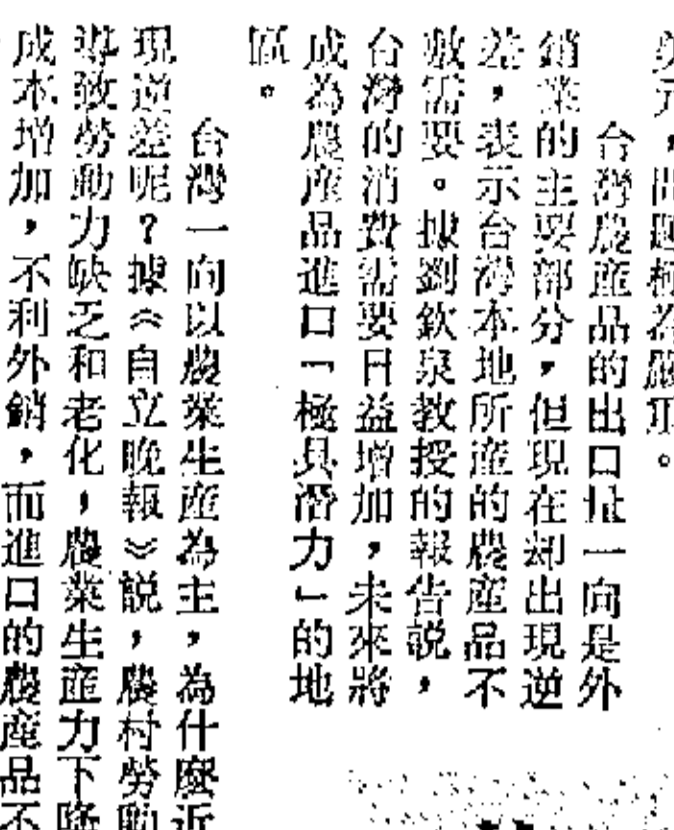 元，出題極為嚴重。
台灣農産品的出口量一向是外
銷業的主要部分，但現在却出現逆
差，表示台灣本地所産的農産品不
敷需要。據劉欽泉教授的報告説，
台灣的消費需要日益增加，未來將
成為農産品進口「極具潛力」的地
區。
台灣一向以農業生産為主，為什麼近
現逆差呢？據《自立晚報》説，農村勞動
導致勞動力缺乏和老化，農業生産力下降
成本增加，不利外銷，而進口的農産品不